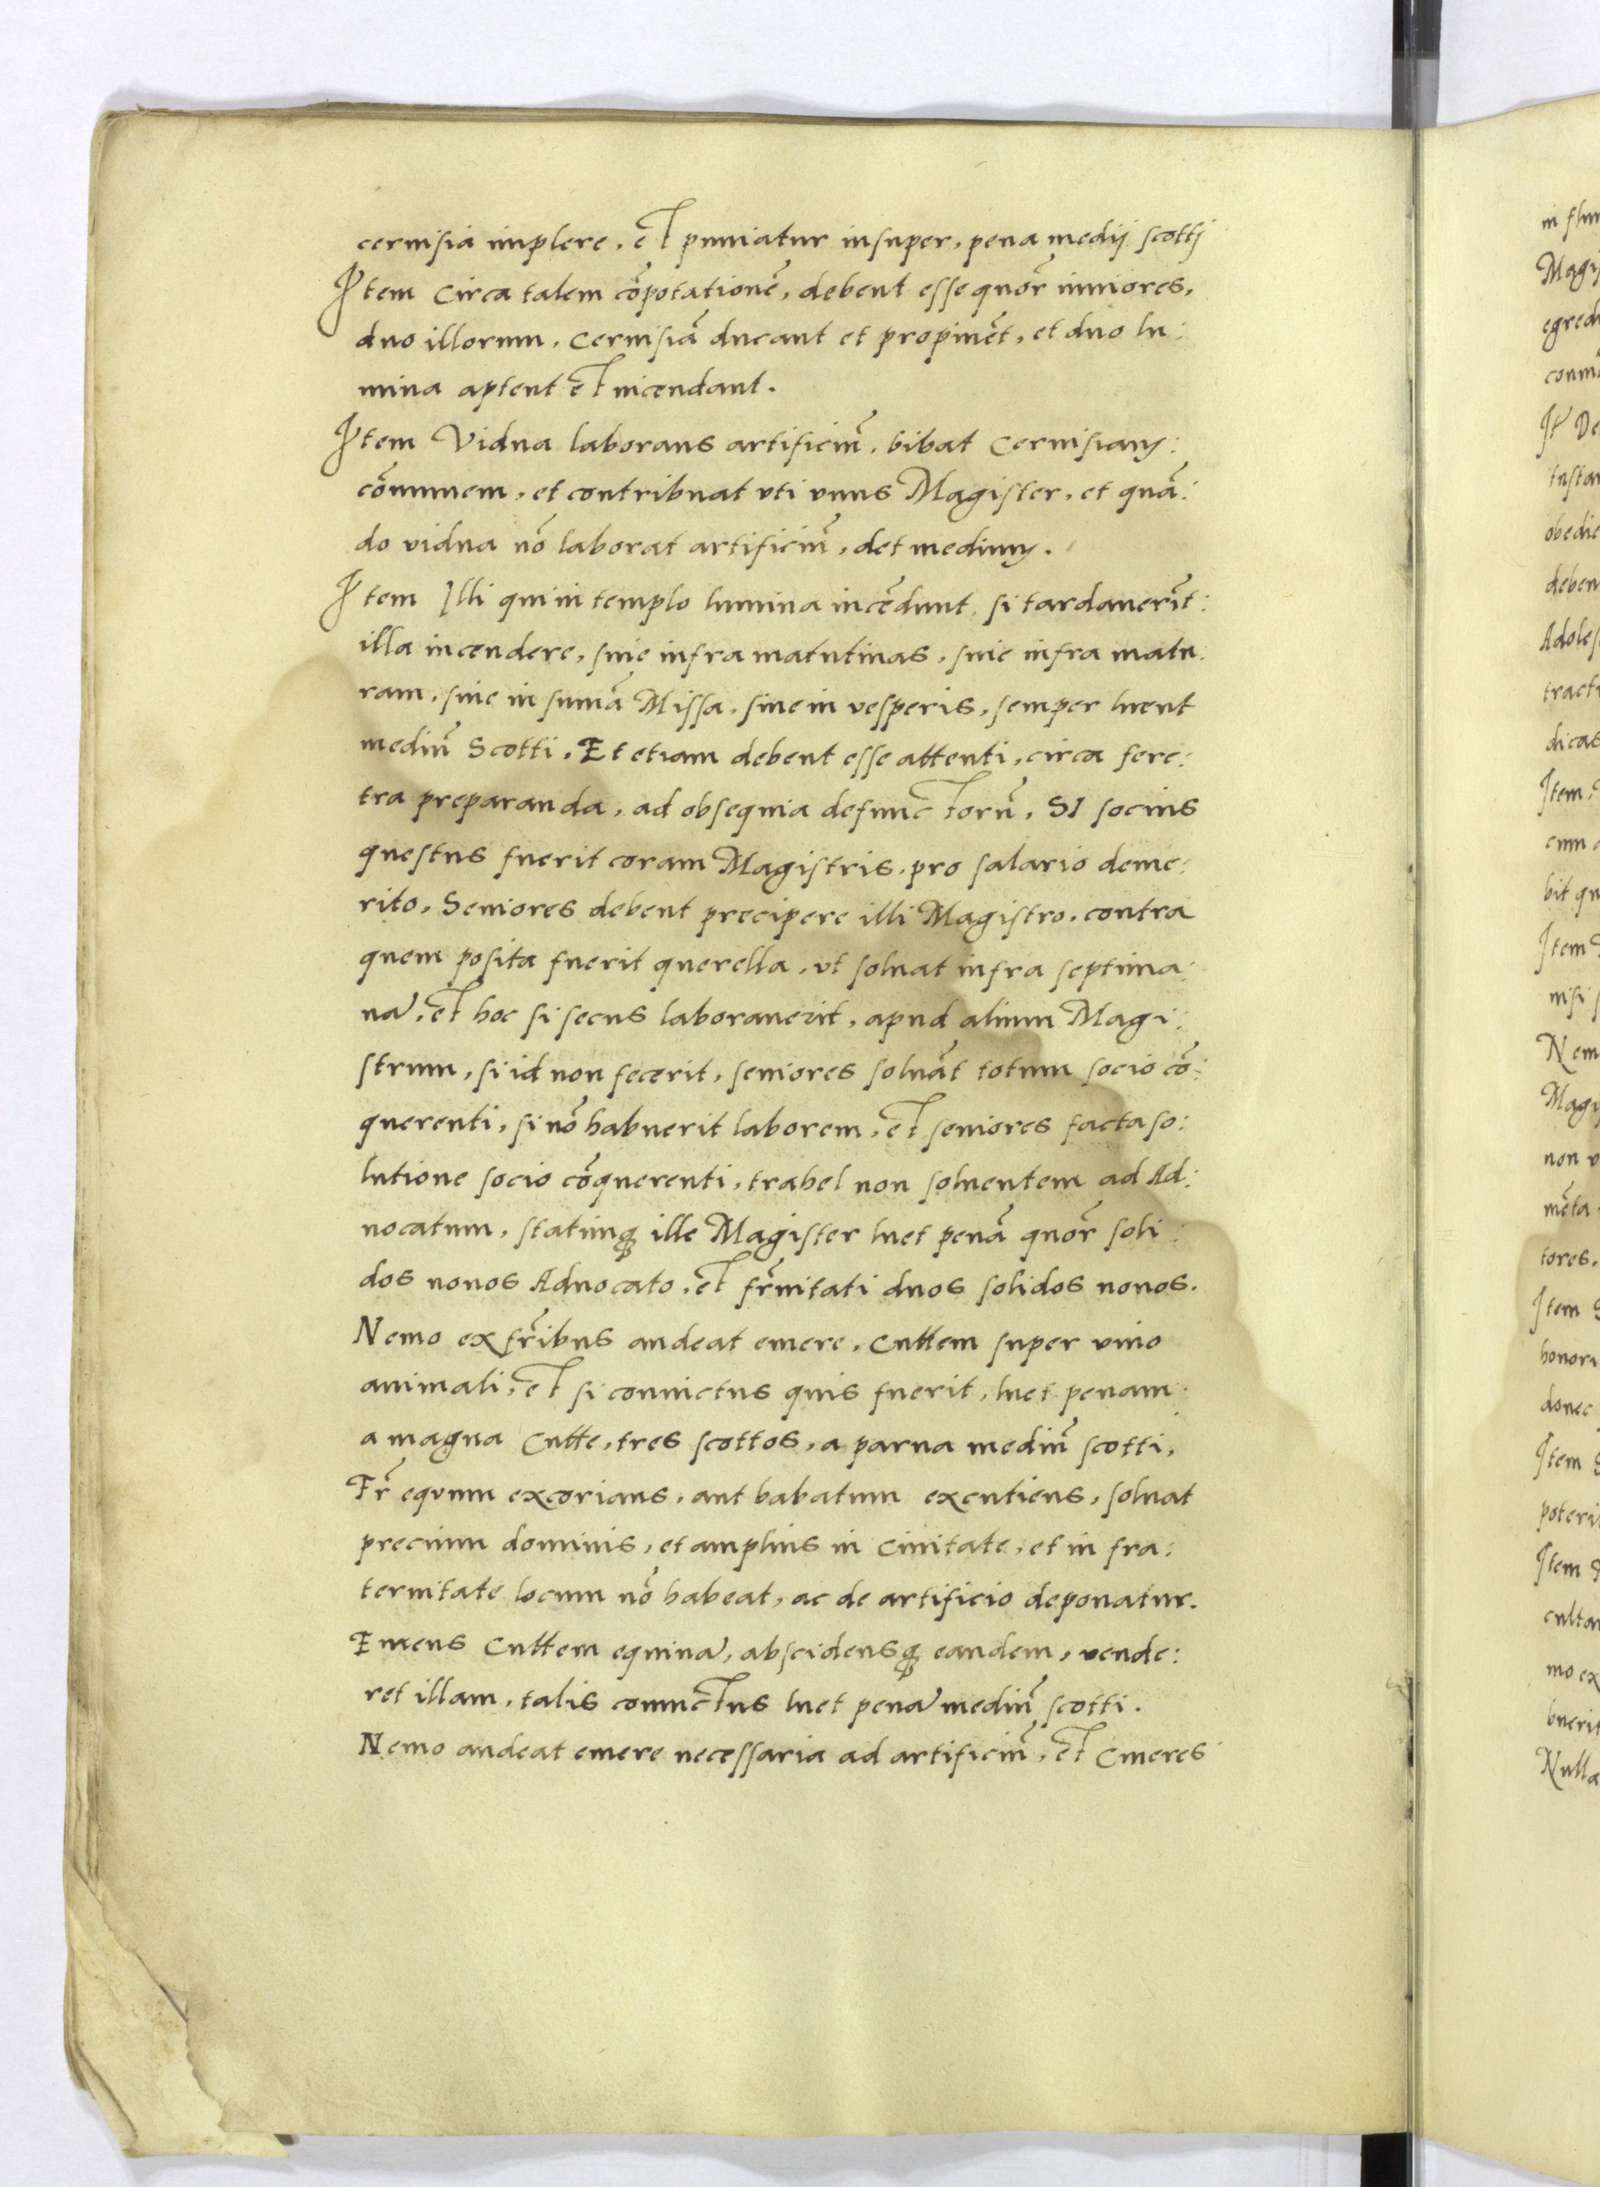 cervisia implere, et puniatur insuper, pena medij scotti
Item Circa talem cōpotationē, debent esse quōr iuniores,
duo illorum, Cervisiā ducant et propinēt, et duo lu:
mina aptent et incendant.
Item Vidua laborans artificiū, bibat Cervisiam:
cōmunem, et contribuat vti vnus Magister, et quā:
do vidua nō laborat artificiū, det medium.
Item Illi qui in templo lumina incēdunt, si tardauerīt:
illa incendere, siue infra matutinas, siue infra matu:
ram, siue in sumā Missa, siue in vesperis, semper luent
mediū Scotti, Et etiam debent esse attenti, circa fere:
tra preparanda, ad obsequia defunctorū, SI socius
questus fuerit coram Magistris, pro salario deme:
rito, Seniores debent precipere illi Magistro, contra
quem posita fuerit querella, vt soluat infra septima:
nā, et hoc si secus laborauerit, apud alium Magi:
strum, si id non fecerit, seniores soluāt totum socio cō:
querenti, si nō habuerit laborem, et seniores facta so:
lutione socio cōquerenti, trahel non soluentem ad Ad:
uocatum, statimq; ille Magister luet penā quōr soli:
dos nouos Aduocato, et fr̄nitati duos solidos nouos.
Nemo ex fr̄ibus audeat emere, Cuttem super viuo
animali, et si conuictus quis fuerit, luet penam:
a magna Cutte, tres scottos, a parua mediū scotti,
Fr̄ equum excorians, aut babatum excutiens, soluat
precium dominis, et amplius in Ciuitate, et in fra:
ternitate locum nō habeat, ac de artificio deponatur.
Emens Cuttem equinā, abscidensq; eandem, vende:
ret illam, talis conuictus luet penā mediū scotti.
Nemo audeat emere necessaria ad artificiū, et Cineres
in flu
Magi
egredi
It De
instan
obedie
deben
Adoles
tract
dicat
Item
cum
bit qu
Item
nisi
Nem
Magi
non v
mēta
tores,
Item
honor
donec
Item
poteri
Item
mo ex
buerit
Nulla